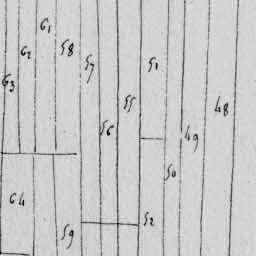 61
58
62
57
51
63
55
48
56
49
50
64
52
59